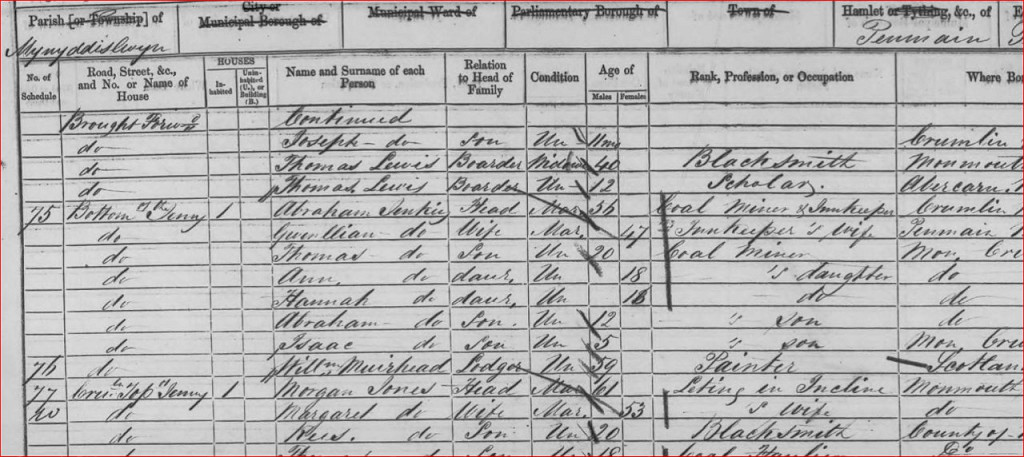 Parish [or Township] of City or Municipal Borough of Municipal Ward of Parliamentary Borough of Town of Hamlet or Tything, &c., of
Mynyddislwyn Penmain
No. of Schedule Road, Street, &c., and No. or Name of House HOUSES Inhabited Uninhabited (U.), or Building (B.) Name and Surname of each Person Relation to Head of Family Condition Age of Males Females Rank, Profession, or Occupation Where Bo
Brought Forwd Continued
do Joseph do Son Un 11 ms Crumlin
do Thomas Lewis Boarder Widower 40 Blacksmith Monmout
do Thomas Lewis Boarder Un 12 Scholar. Abercarn
75 Bottom of the Jenny 1 Abraham Jenkin Head Mar. 56 Coal Miner & Innkeeper Crumlin
do Gwenllian do Wife Mar. 47 Innkeeper's wife Penmain
do Thomas do Son Un 20 Coal Miner Mon Cru
do Ann. do daur. Un 18 " daughter do
do Hannah do daur. Un 18 do do
do Abraham do Son. Un 12 " son do
do Isaac do Son Un 5 " son Mon. Cru
76 do Willm Muirhead Lodger Un 59 Painter Scotland
77 Top Jenny 1 Morgan Jones Head Mar 61 in Incline Monmouth
do Margaret do Wife Mar. 53 's wife do
do Rees. do Son Un 20 Blacksmith County of
do 18